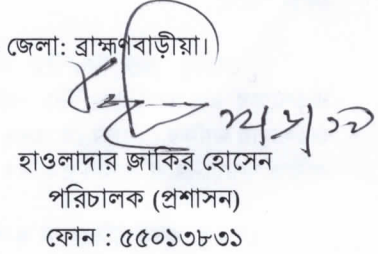 জেলা: ব্রাহ্মণবাড়ীয়া।
হাওলাদার জাকির হোসেন
পরিচালক (প্রশাসন)
ফোন : ৫৫০১৩৮৩১